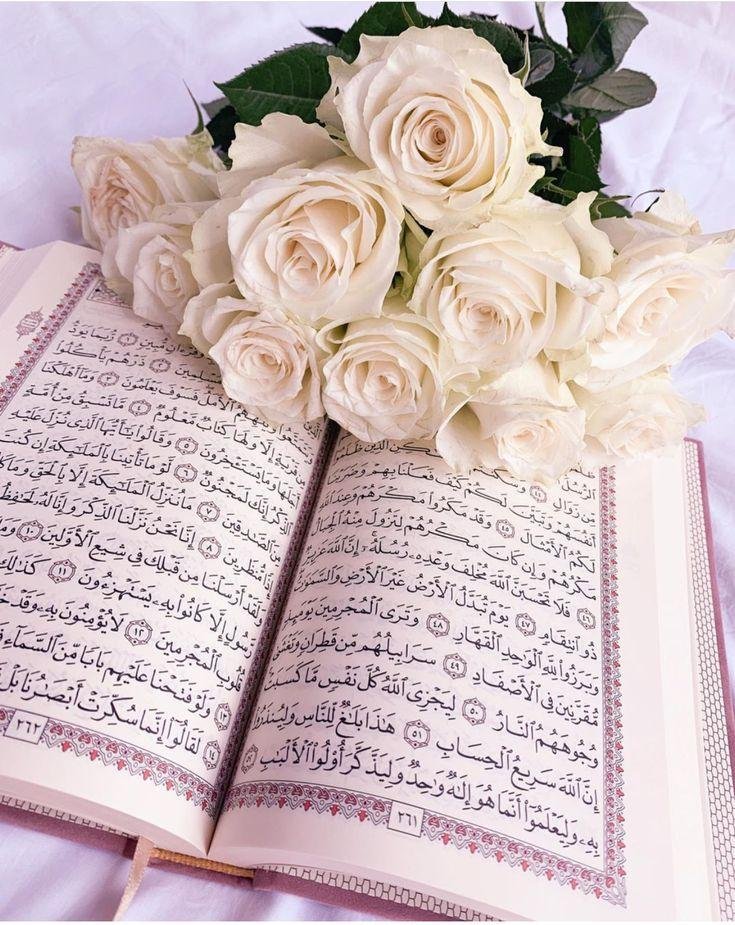 مِّن زَوَالٍ
أَنفُسَهُمْ وَتَبَيَّنَ لَكُمْ كَيْفَ فَعَلْنَا بِهِمْ وَضَرَبْنَا
لَكُمُ ٱلْأَمْثَالَ ٤٥ وَقَدْ مَكَرُوا۟ مَكْرَهُمْ وَعِندَ ٱللَّهِ
مَكْرُهُمْ وَإِن كَانَ مَكْرُهُمْ لِتَزُولَ مِنْهُ ٱلْجِبَالُ
٤٦ فَلَا تَحْسَبَنَّ ٱللَّهَ مُخْلِفَ وَعْدِهِۦ رُسُلَهُۥٓ ۗ إِنَّ ٱللَّهَ عَزِيزٌ
ذُو ٱنتِقَامٍ ٤٧ يَوْمَ تُبَدَّلُ ٱلْأَرْضُ غَيْرَ ٱلْأَرْضِ وَٱلسَّمَٰوَٰتُ
وَبَرَزُوا۟ لِلَّهِ ٱلْوَٰحِدِ ٱلْقَهَّارِ ٤٨ وَتَرَى ٱلْمُجْرِمِينَ يَوْمَئِذٍ
مُّقَرَّنِينَ فِى ٱلْأَصْفَادِ ٤٩ سَرَابِيلُهُم مِّن قَطِرَانٍ وَتَغْشَىٰ
وُجُوهَهُمُ ٱلنَّارُ ٥٠ لِيَجْزِىَ ٱللَّهُ كُلَّ نَفْسٍ مَّا كَسَبَتْ
إِنَّ ٱللَّهَ سَرِيعُ ٱلْحِسَابِ ٥١ هَٰذَا بَلَٰغٌ لِّلنَّاسِ وَلِيُنذَرُوا۟
بِهِۦ وَلِيَعْلَمُوٓا۟ أَنَّمَا هُوَ إِلَٰهٌ وَٰحِدٌ وَلِيَذَّكَّرَ أُو۟لُوا۟ ٱلْأَلْبَٰبِ ٥٢
٢٦١
رُّبَمَا يَوَدُّ
ذَرْهُمْ يَأْكُلُوا۟
فَسَوْفَ يَعْلَمُونَ ٣ وَمَآ أَهْلَكْنَا
إِلَّا وَلَهَا كِتَابٌ مَّعْلُومٌ ٤ مَّا تَسْبِقُ مِنْ أُمَّةٍ
وَمَا يَسْتَـْٔخِرُونَ ٥ وَقَالُوا۟ يَٰٓأَيُّهَا ٱلَّذِى نُزِّلَ عَلَيْهِ
ٱلذِّكْرُ إِنَّكَ لَمَجْنُونٌ ٦ لَّوْ مَا تَأْتِينَا بِٱلْمَلَٰٓئِكَةِ إِن كُنتَ
مِنَ ٱلصَّٰدِقِينَ ٧ مَا نُنَزِّلُ ٱلْمَلَٰٓئِكَةَ إِلَّا بِٱلْحَقِّ وَمَا
مُّنظَرِينَ ٨ إِنَّا نَحْنُ نَزَّلْنَا ٱلذِّكْرَ وَإِنَّا لَهُۥ لَحَٰفِظُونَ
وَلَقَدْ أَرْسَلْنَا مِن قَبْلِكَ فِى شِيَعِ ٱلْأَوَّلِينَ ١٠ وَمَا
رَّسُولٍ إِلَّا كَانُوا۟ بِهِۦ يَسْتَهْزِءُونَ ١١ كَذَٰلِكَ
قُلُوبِ ٱلْمُجْرِمِينَ ١٢ لَا يُؤْمِنُونَ بِهِۦ وَقَدْ
١٣ وَلَوْ فَتَحْنَا عَلَيْهِم بَابًا مِّنَ ٱلسَّمَآءِ
١٤ لَقَالُوٓا۟ إِنَّمَا سُكِّرَتْ أَبْصَٰرُنَا بَلْ
٢٦٢